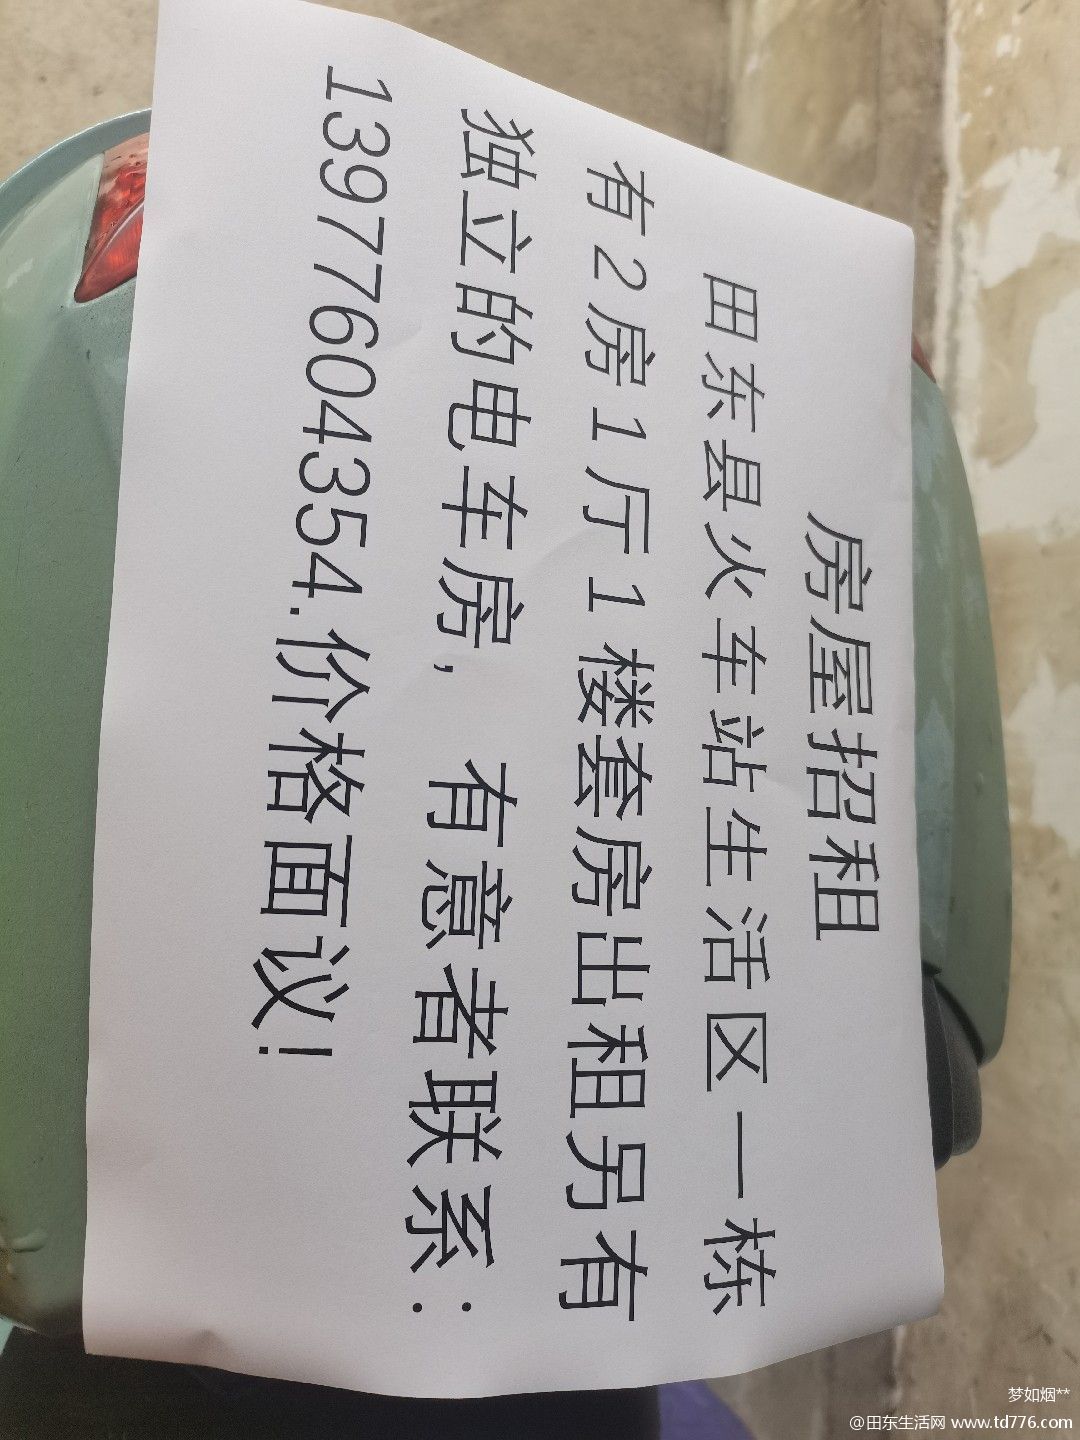 房屋招租
田东县火车站生活区一栋
有2房1厅1楼套房出租另有
独立的电车房，有意者联系：
13977604354.价格面议！
梦如烟**
@田东生活网 www.td776.com